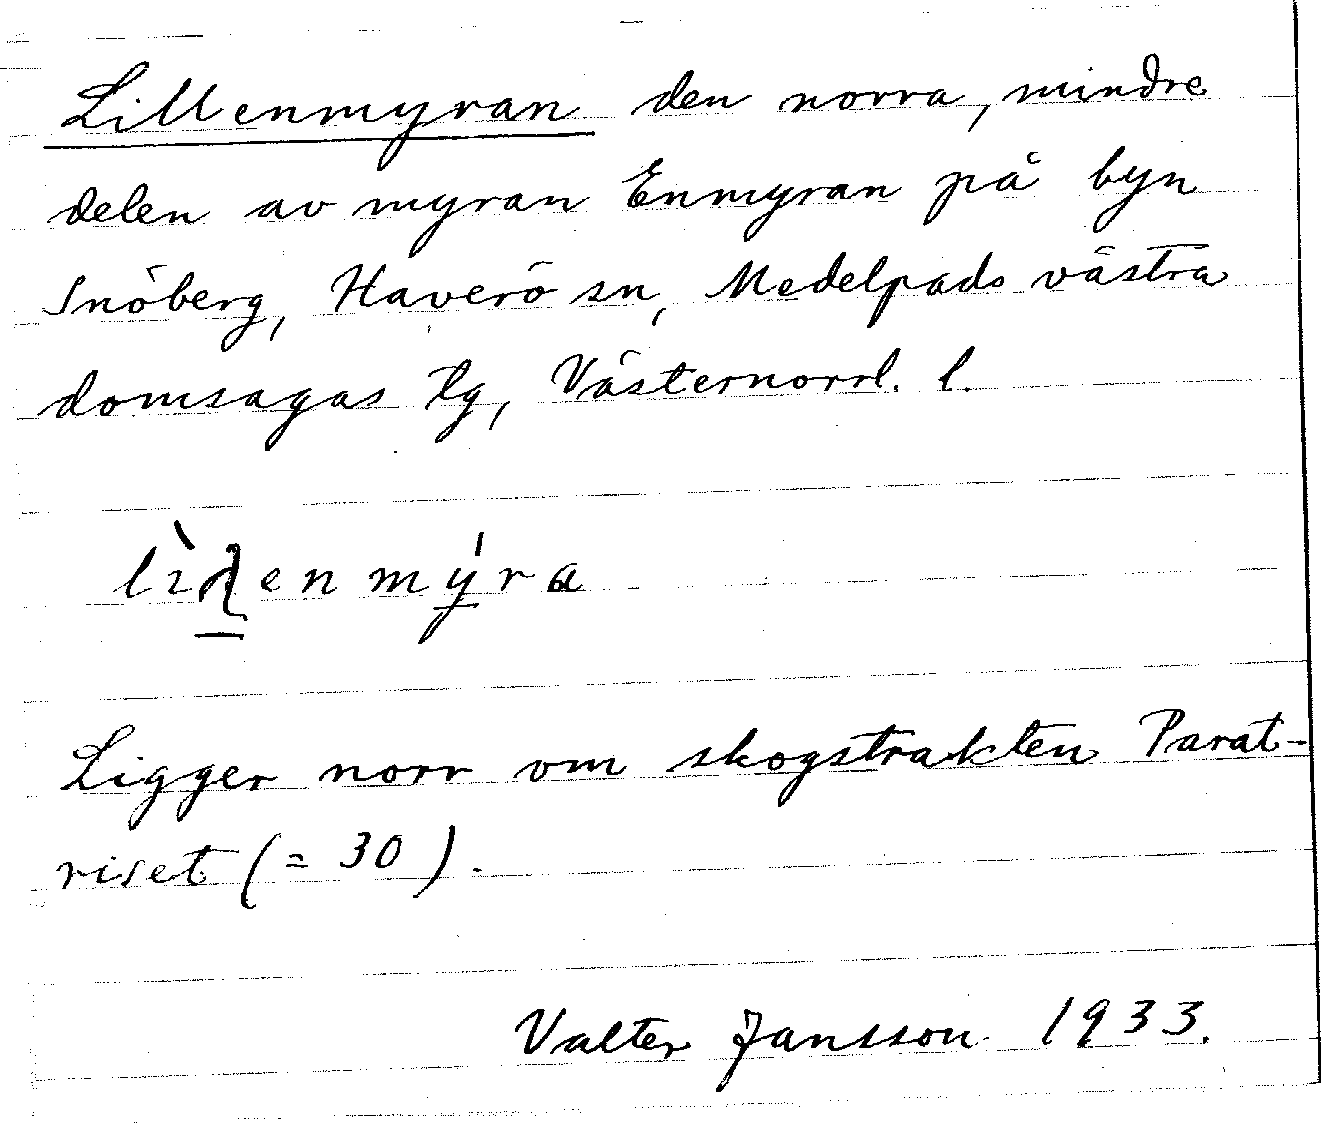 Lillenmyran den norra, mindre
delen av myran Enmyran på byn
Snöberg, Haverö sn, Medelpads västra
domsagas tlg, Västernorrl. l.
Ligger norr om skogstrakten Parat-
riset (= 30).
Valter Jansson 1933.